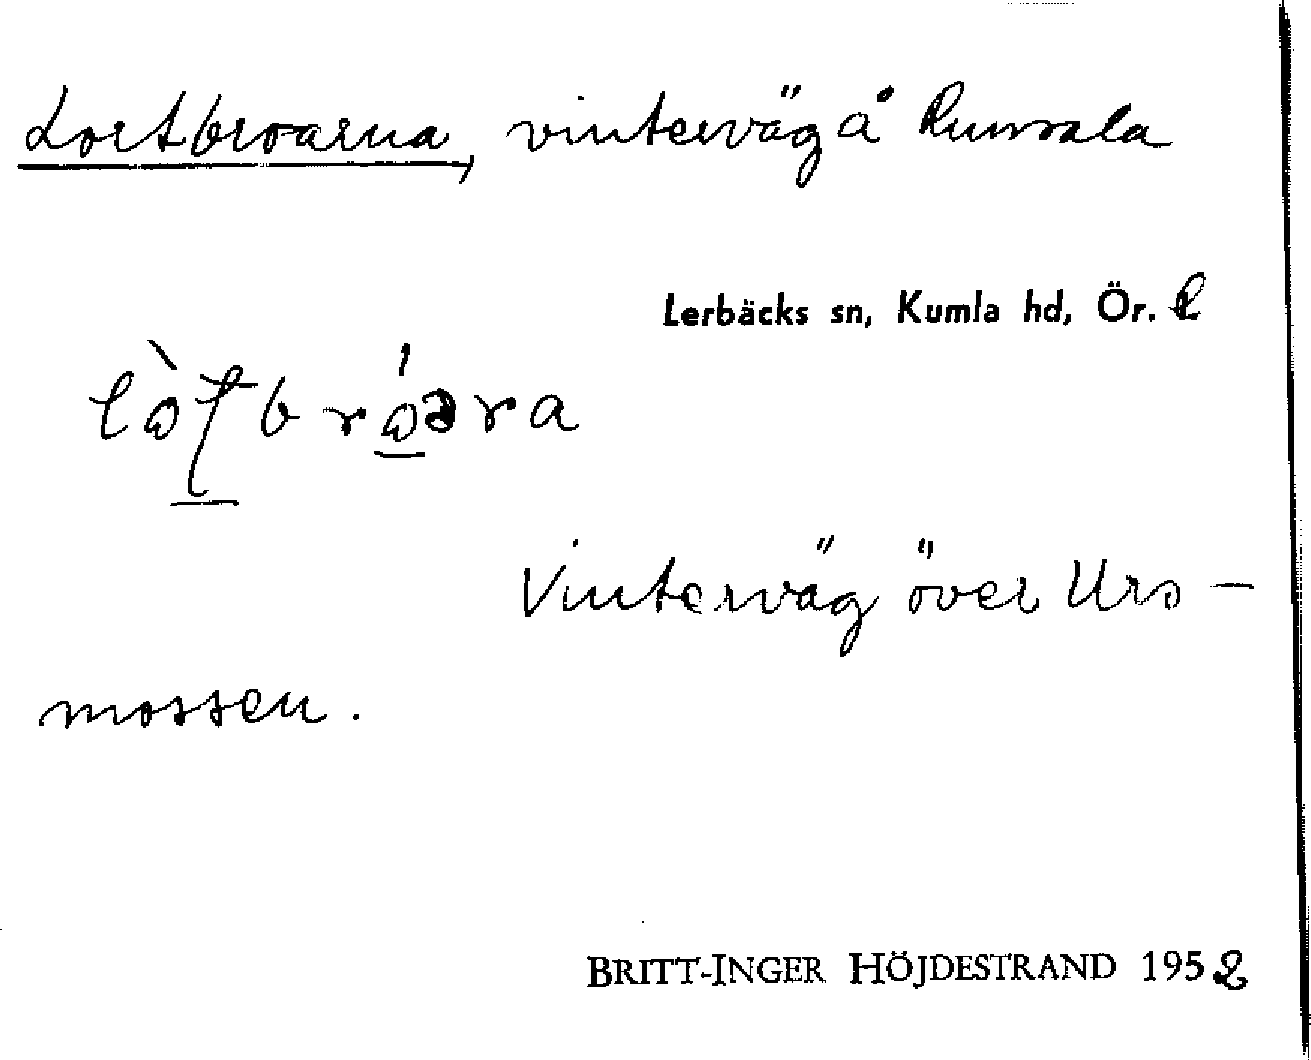 Lortbroarna, vinterväg å Runsala
Lerbäcks sn, Kumla hd, Ör. l
Vinterväg över Urs-
mossen.
BRITT-INGER HÖJDESTRAND 1952